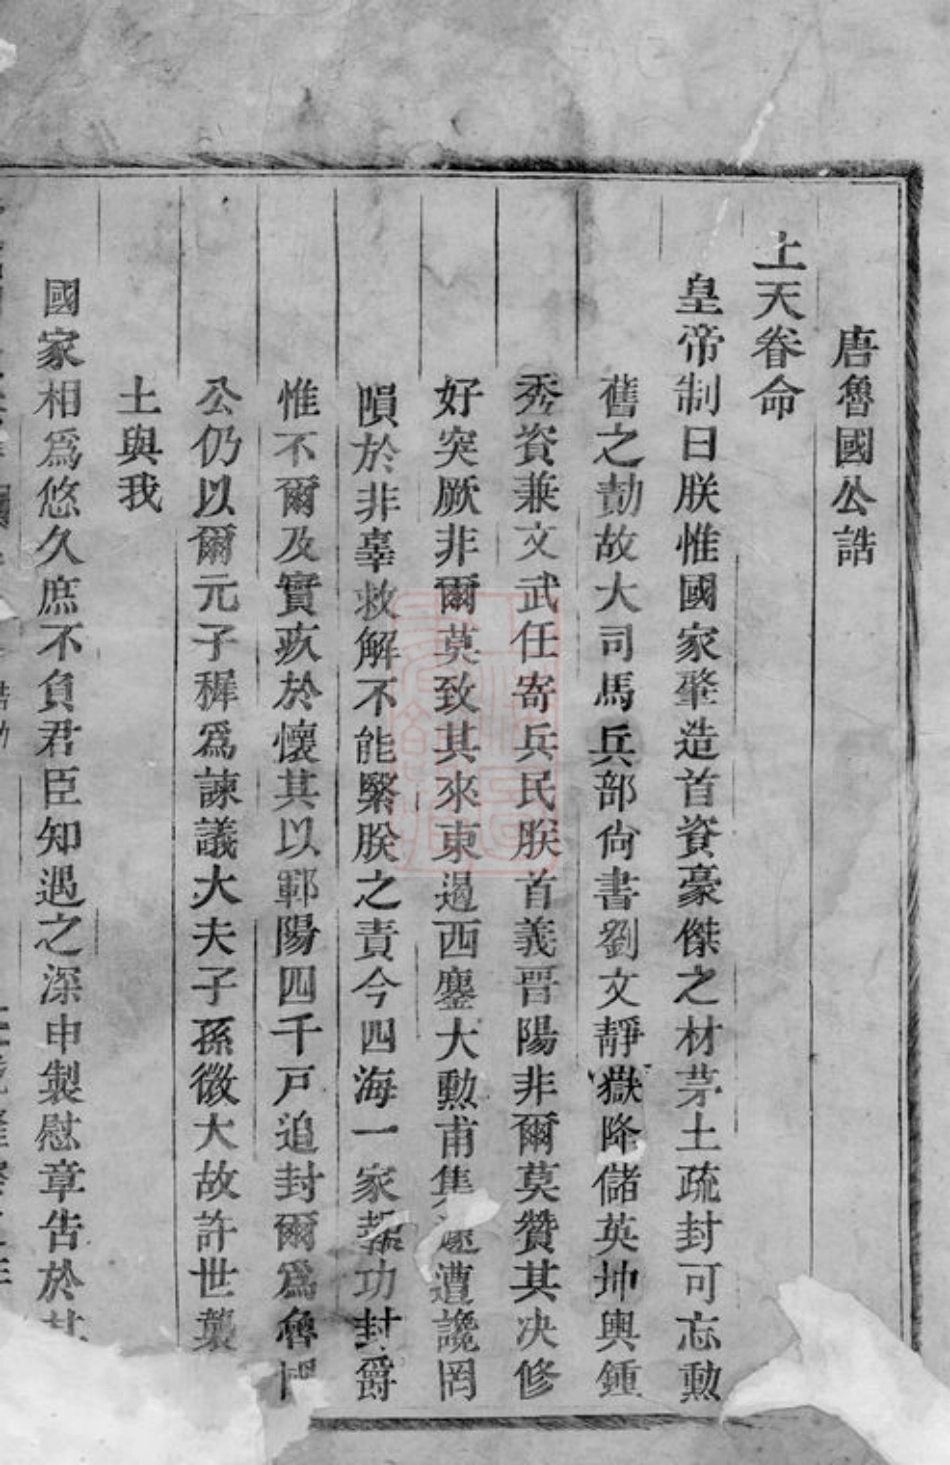 唐魯國公誥
上天眷命
皇帝制曰朕惟國家肇造首資豪傑之材茅土疏封可忘勳
舊之勣故大司馬兵部尙書劉文靜嶽降儲英坤輿鍾
秀資兼文武任寄兵民朕首義晋陽非爾莫贊其决修
好突厥非爾莫致其來東遏西鏖大勲甫集遽遭讒罔
隕於非辜救解不能緊朕之責今四海一家報功封爵
惟不爾及實疚於懷其以鄆陽四千戸追封爾爲魯國
公仍以爾元子穉爲諫議大夫子孫徵大故許世襲
土與我
國家相爲悠久庶不負君臣知遇之深申製慰章告於其